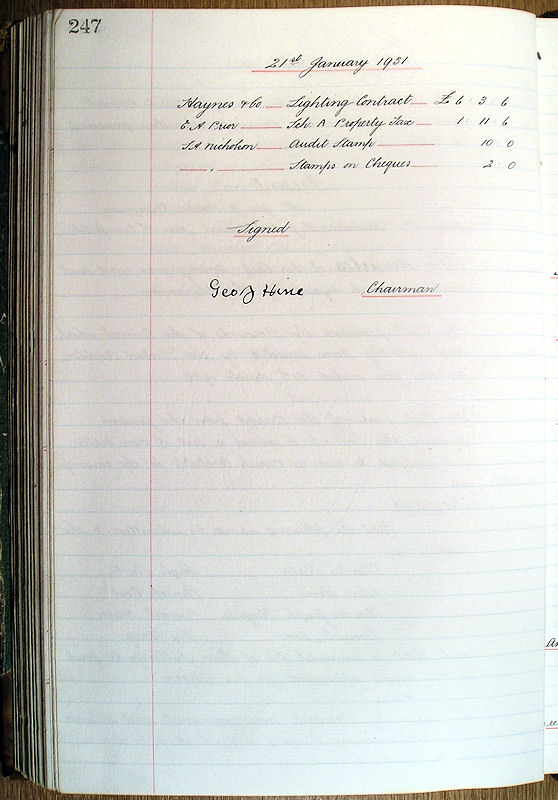 247
21st January 1931
Haynes & Co Lighting Contract £ 6 : 3 : 6
E. A. Prior Sch. A Property Tax 1 : 11 : 6
S.A. Nicholson Audit Stamp 10 : 0
" Stamps on Cheques 2 0
Signed
Geo J Hine Chairman